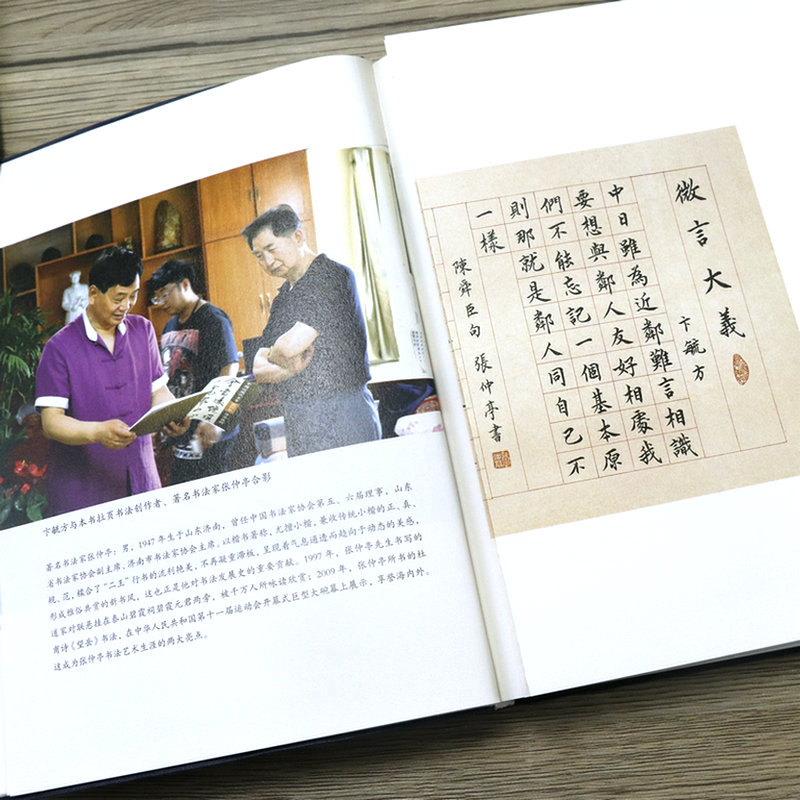 卞毓方与本书拉页书法创作者、著名书法家张仲亭合影
著名书法家张仲亭:男,1947年生于山东济南,曾任中国书法家协会第五、六届理事,山东
省书法家协会副主席、济南市书法家协会主席。以楷书著称,尤擅小楷,兼收传统小楷的正、具、
规、范,糅合了“二王”行书的流利艳美,不再凝重滞板,呈现着气息通透而趋向于动态的美感,
形成雅俗共赏的新书风,这也正是他对书法发展史的重要贡献。1997年,张仲亭先生书写的
道家对联悬挂在泰山碧霞祠碧霞元君两旁,被千万人所咏读欣赏;2009年,张仲亭所书的杜
甫诗《望岳》书法,在中华人民共和国第十一届运动会开幕式巨型大碗幕上展示,享誉海内外。
这成为张仲亭书法艺术生涯的两大亮点。
微言大義
卞毓方
中日雖為近鄰難言相識
要想與鄰人友好相處我
們不能忘記一個基本原
則那就是鄰人同自己不
一樣
陳舜臣句 張仲亭書